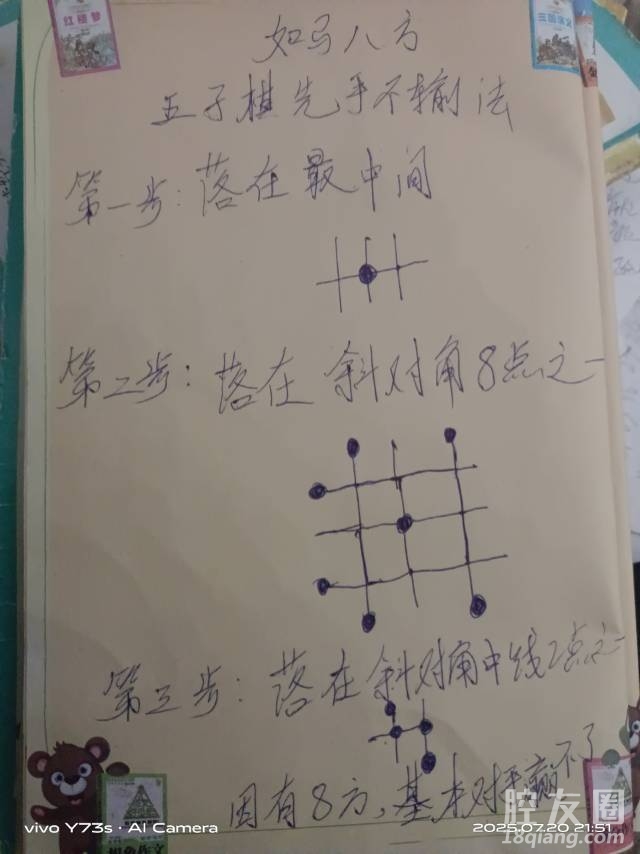 红楼梦
三国演义
如马八方
五子棋先手不输法
第一步：落在最中间
第二步：落在斜对角8点之一
第三步：落在斜对角中线2点之一
因有8方，基本对手赢不了
vivo Y73s · AI Camera
2025.07.20 21:51
腔友圈
18qiang.com